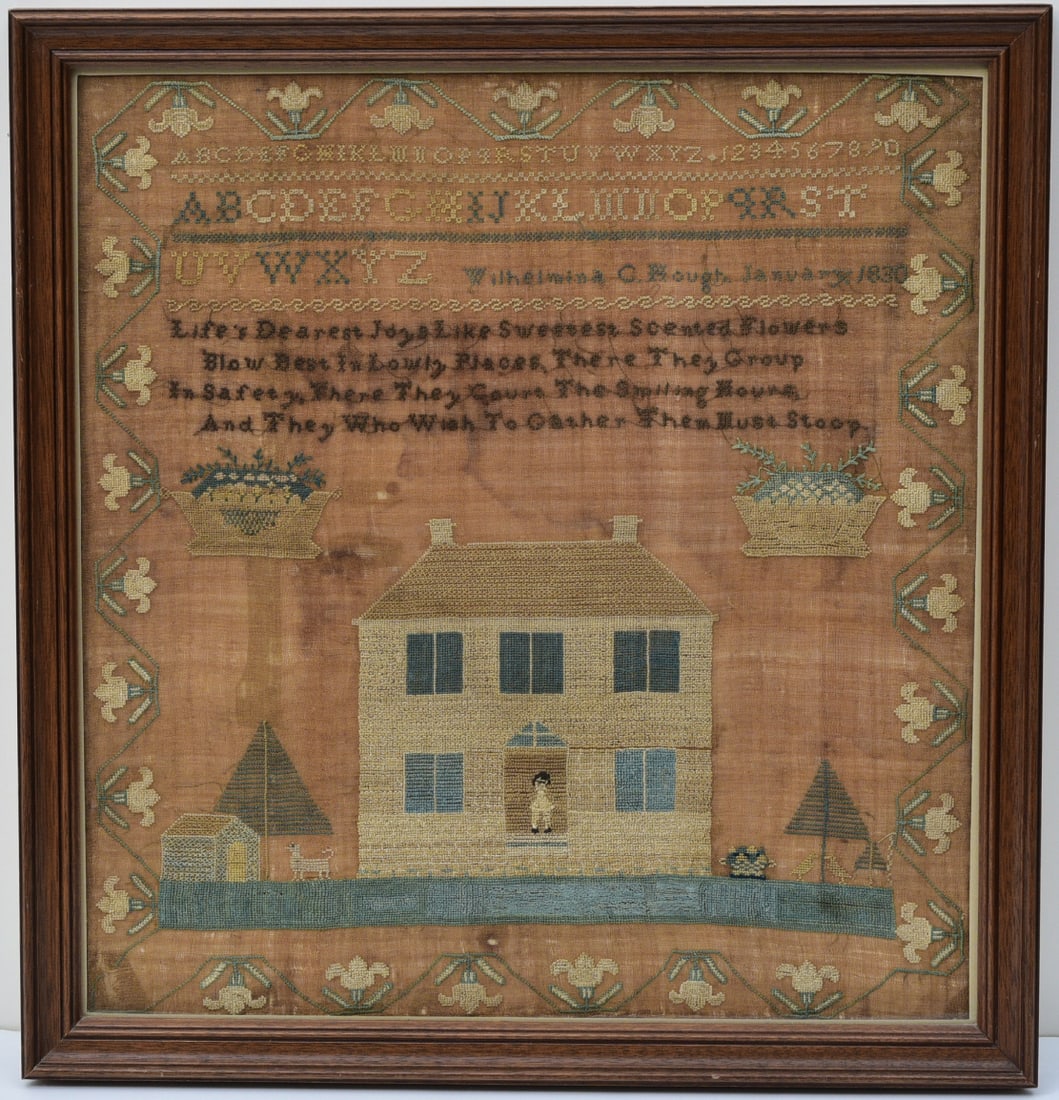 ABCDEFGHIKLMNOPQRSTUVWXYZ 1234567890
ABCDEFGHIJKLMNOPQRST
UVWXYZ Wilhelmina C. Hough January 1830
Life's Dearest Joys Like Sweetest Scented Flowers
Blow Best In Lowly Places, There They Group
In Safety, There They Court The Smiling Hours,
And They Who Wish To Gather Them Must Stoop.